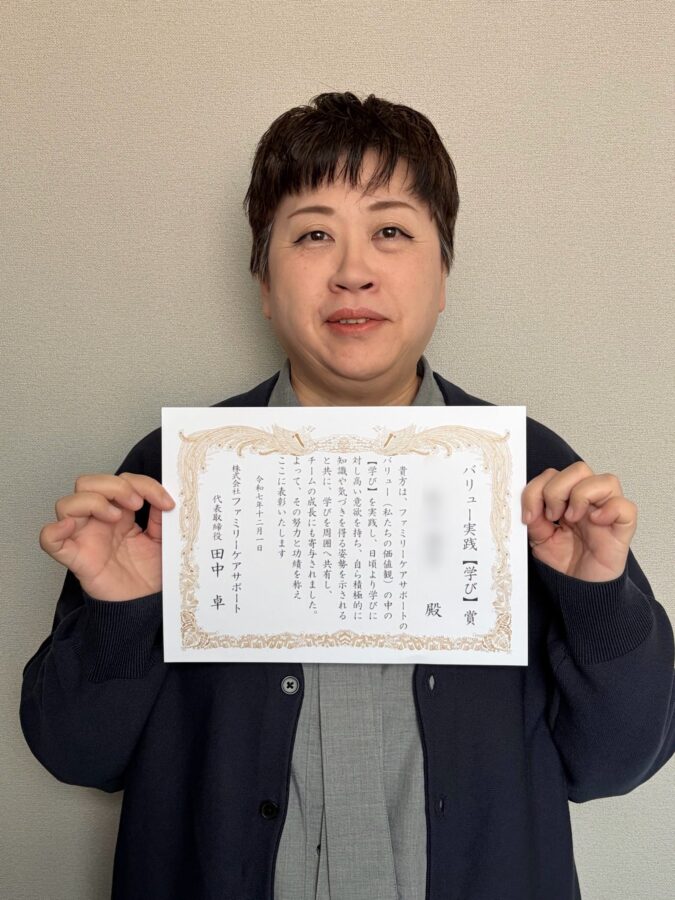 バリュー実践【学び】賞
殿
貴方は、ファミリーケアサポートの
バリュー(私たちの価値観)の中の
【学び】を実践し、日頃より学びに
対し高い意欲を持ち、自ら積極的に
知識や気づきを得る姿勢を示される
と共に、学びを周囲へ共有し、
チームの成長にも寄与されました。
よって、その努力と功績を称え
ここに表彰いたします
令和七年十二月一日
株式会社ファミリーケアサポート
代表取締役 田中 卓